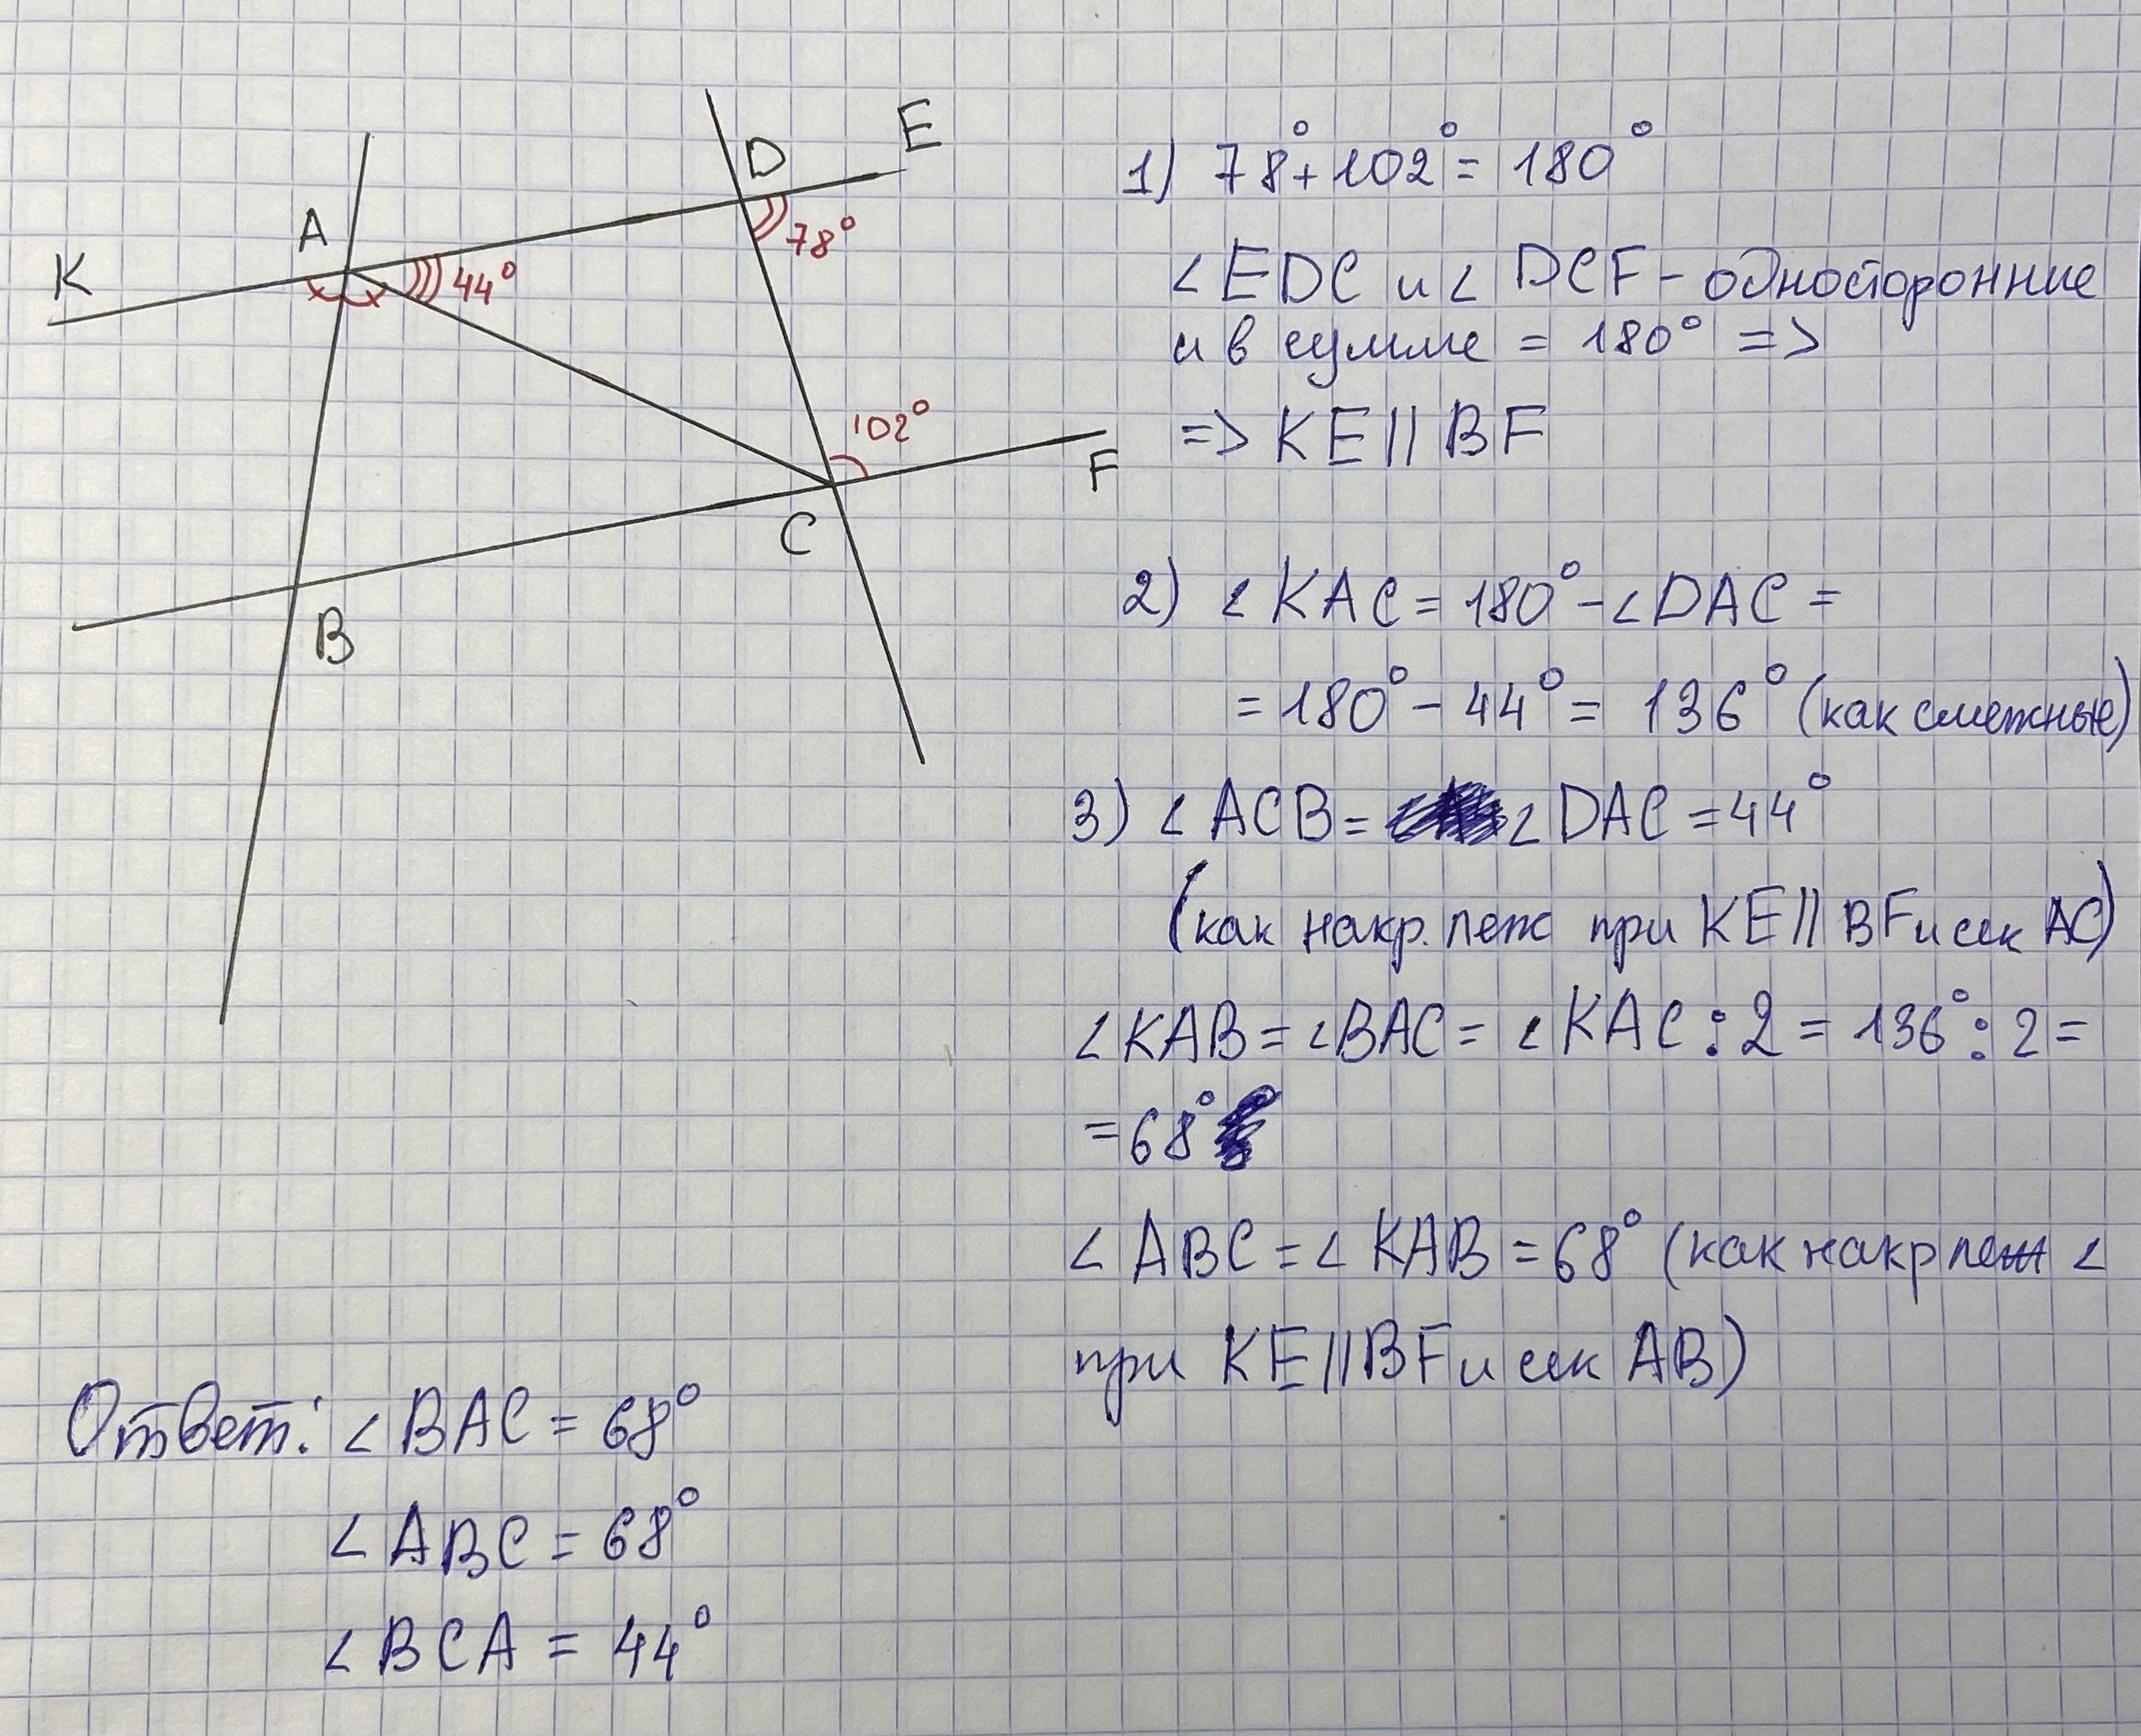 K
A
D
E
44°
78°
102°
F
C
B
1) 78°+102°=180°
∠EDC и ∠DCF - односторонние
и в сумме = 180° =>
=> KE || BF
2) ∠KAC = 180° - ∠DAC =
= 180° - 44° = 136° (как смежные)
3) ∠ACB = ∠DAC = 44°
(как накр. леж при KE || BF и сек AC)
∠KAB = ∠BAC = ∠KAC : 2 = 136° : 2 =
= 68°
∠ABC = ∠KAB = 68° (как накр леж ∠
при KE || BF и сек AB)
Ответ: ∠BAC = 68°
∠ABC = 68°
∠BCA = 44°